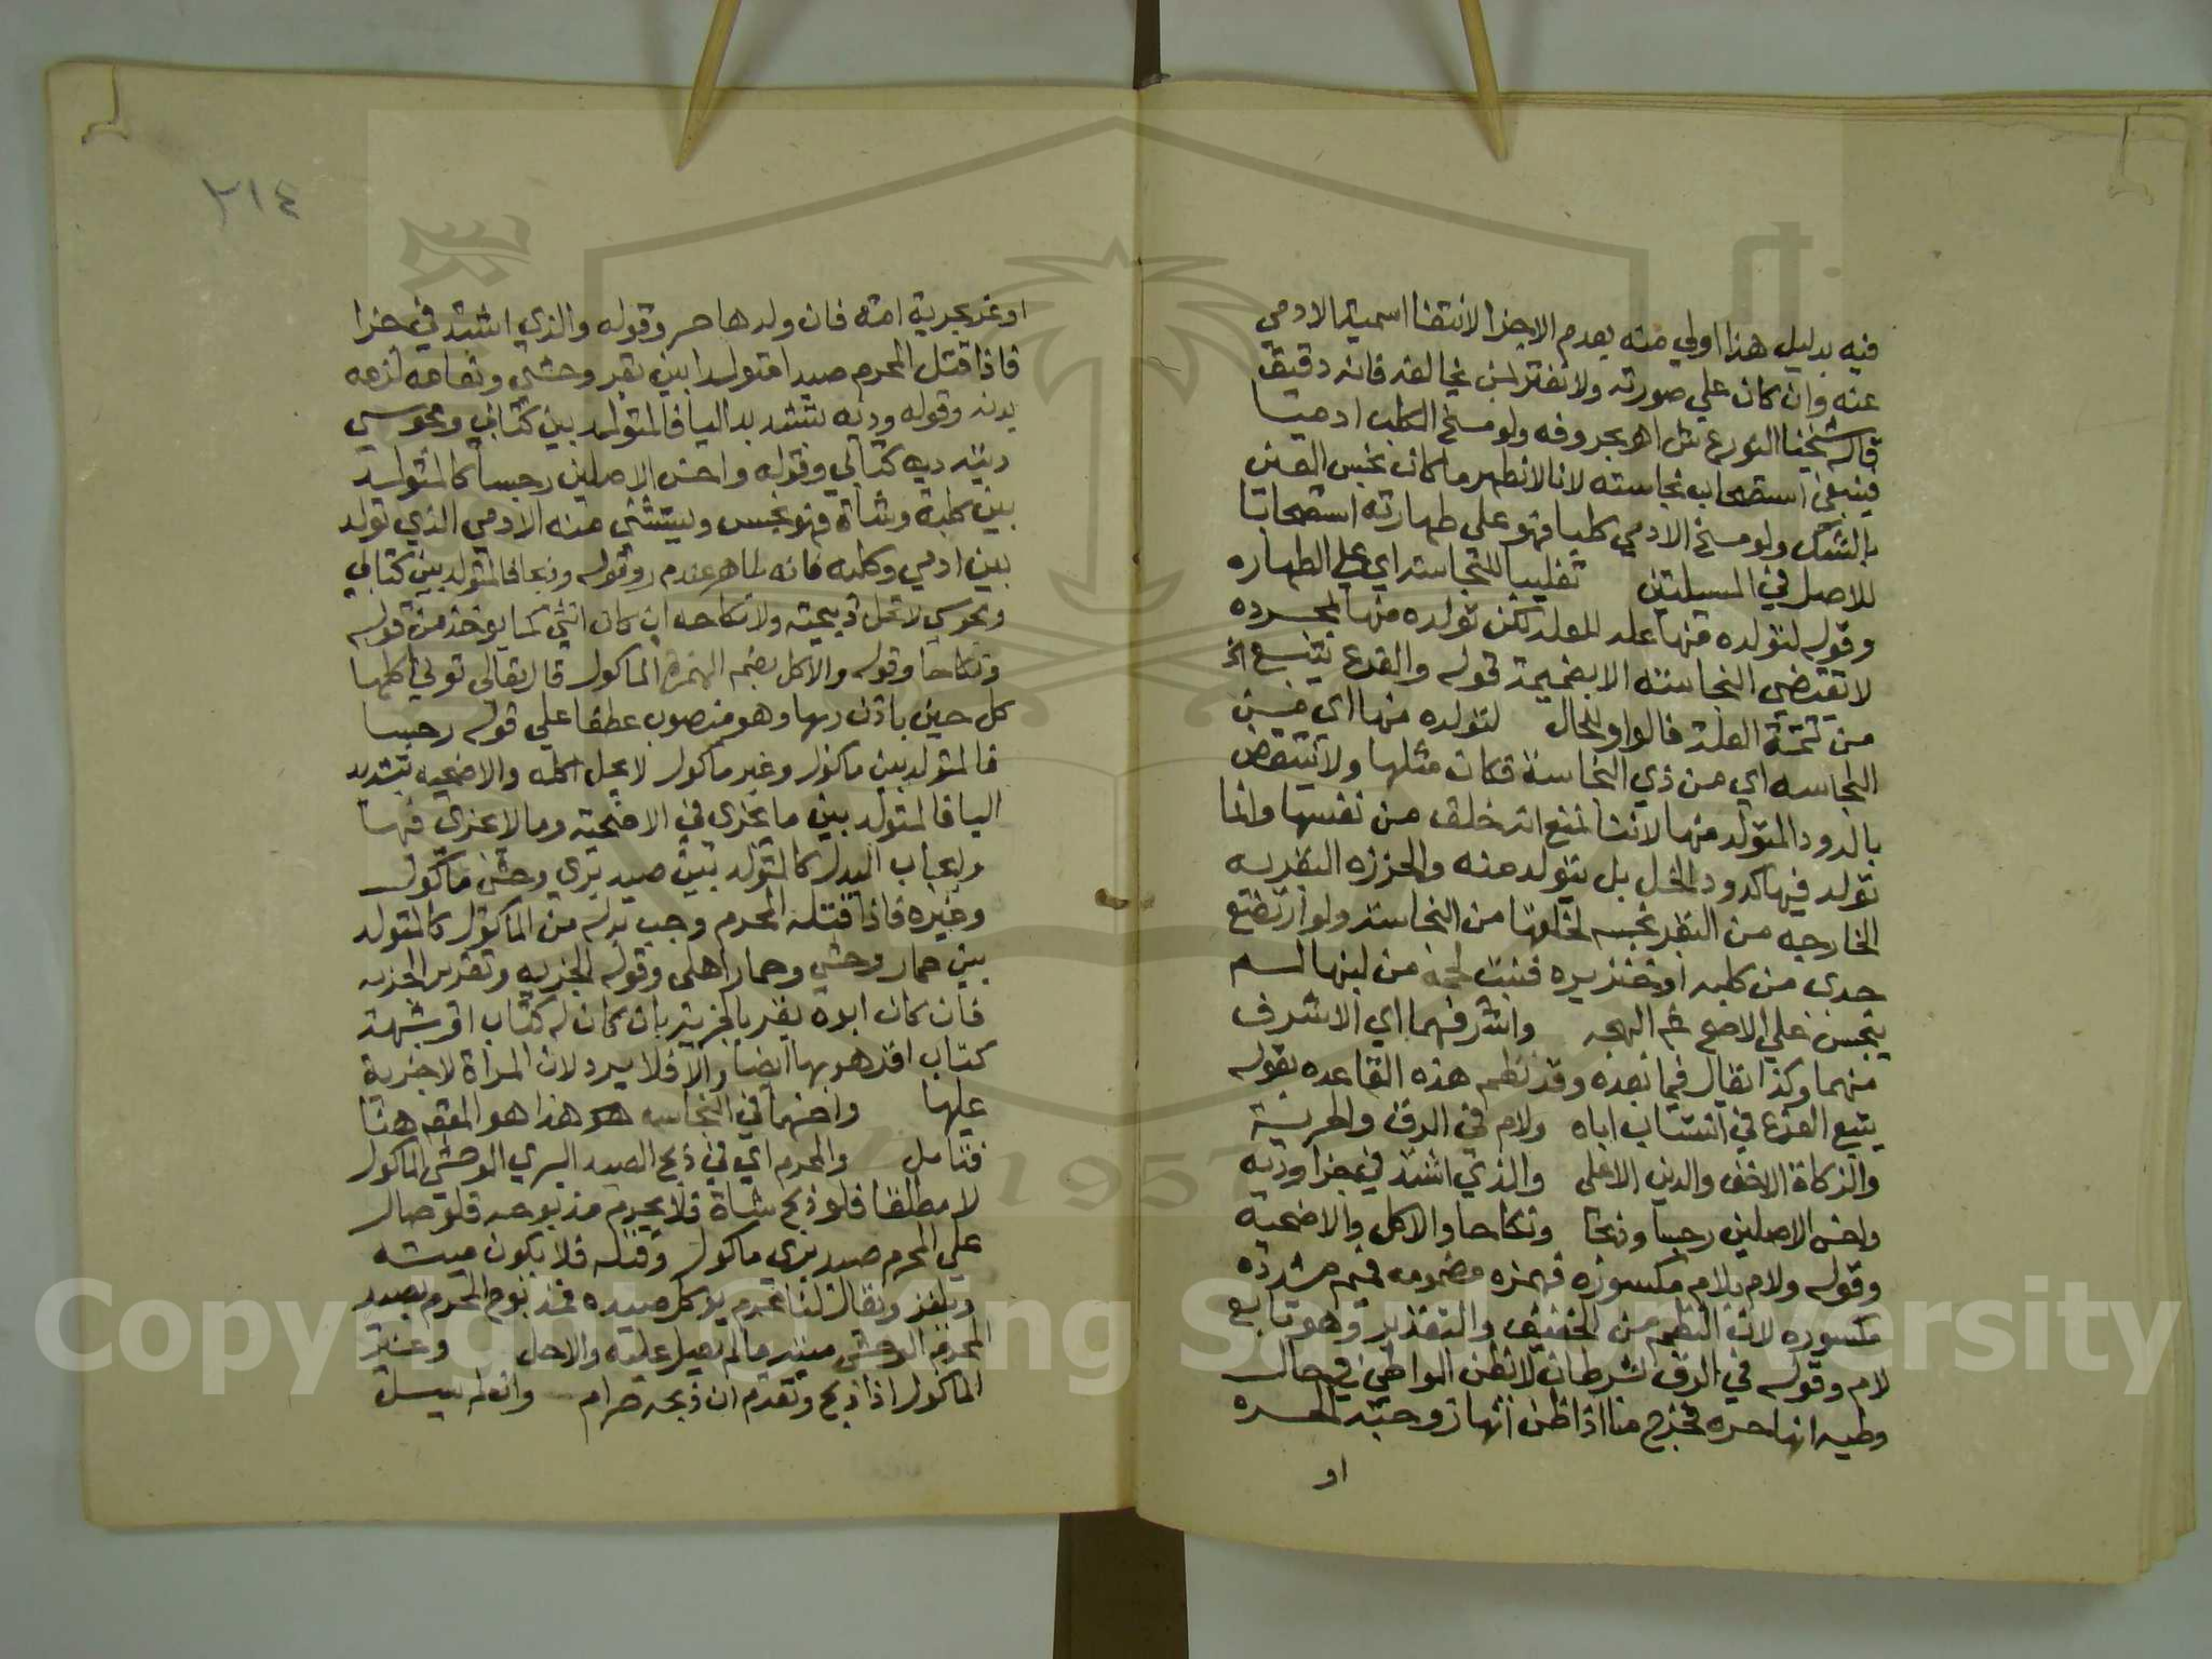 فيه بدليل هذا اولي منه بعدم الاجزا لانتفا اسمية الادمي
عنه وان كان علي صورته ولا تغتر لمن يخالفه فانه دقيق
قاله شيخنا ع ش اهر بحروفه ولو مسخ الكلب ادميا
فينبغي استصحاب نجاسته لانا لا نطهر ما كان نجس العين
بالشك ولو مسخ الادمي كلبا فهو علي طهارته استصحابا
للاصل في المسيلتين تغليبا للنجاسة اي علي الطهاره
وقوله لتولده منها علة للعلة لكن تولده منها بمجرده
لا تقتضي النجاسة الا بضميمة قوله والفرع يتبع اخ
من تتمة العلة فالواو للحال لتولده منها اي من
النجاسه اي من ذي النجاسة فكان مثلها ولا ينتقض
بالدود المتولد منها لانا نمنع انه خلق من نفسها وانما
تولد فيها كدود الخل بل يتولد منه والخرزه البقريه
الخارجه من البقر نجسه لخلقها من النجاسة ولو ارتضع
جدي من كلبه او خنزيره فنبت لحمه من لبنها لم
ينجس علي الاصح واشرفهما اي الاشرف
منهما وكذا يقال فيما بعده وقد نظم هذه القاعده بقوله
يتبع الفرع في انتساب اباه ولام في الرق والحرية
والزكاة الاخف والدين الاعلي والذي اشتد في جزا ودية
واخس الاصلين رجسا وذبحا ونكاحا والاكل والاضحية
وقوله ولام بلام مكسوره فهمزه مضمومه فميم مشدده
مكسوره لان النظم من الخفيف وهو تابع
لام وقوله في الرق شرطان لا يظن الواطئ في حال
وطيه انها حره فخرج منا اذا ظن انها زوجته الحره
او
٢١٤
او غر بحرية امة فان ولدها حر وقوله والذي اشتد في جزا
فاذا قتل المحرم صيدا متولدا بين بقر وحشي ونعامه لزمه
بدنه وقوله وديه بتشديد اليا فالمتولد بين كتابي ومجوسي
ديته دية كتابي وقوله واخس الاصلين رجسا كالمتولد
بين كلبة وشاة فهو نجس ويستثني منه الادمي الذي تولد
بين ادمي وكلبه فانه طاهر عند م ر وقوله وذبحا فالمتولد بين كتابي
ومجوسي لا تحل ذبيحته ولا نكاحه ان كان انثي كما يوخذ من قوله
ونكاحا وقوله والاكل بضم الهمزة الماكول قال تعالي تؤتي اكلها
كل حين باذن ربها وهو منصوب عطفا علي قوله رجسا
فالمتولد بين ماكول وغير ماكول لا يحل اكله والاضحيه بتشديد
اليا فالمتولد بين ما يجزي في الاضحية وما لا يجزي فيها
وايجاب البدل كالمتولد بين صيد بري وحشي ماكول
وغيره فاذا قتله المحرم وجب بدله من الماكول كالمتولد
بين حمار وحشي وحمار اهلي وقوله الجزيه وتقدير الجزيه
فان كان ابوه يقر بالجزية بان كان له كتاب او شبهة
كتاب اقر هو بها ايضا والا فلا يرد لان المراة لا جزية
عليها واخسهما في النجاسه هذا هو المقصود هنا
فتامل والمحرم اي في ذبح الصيد البري الوحشي الماكول
لا مطلقا فلو ذبح شاة فلا يحرم مذبوحه فلو صال
علي المحرم صيد بري ماكول وقتله فلا يكون ميتة
ويلغز ويقال لنا محرم يؤكل صيده فمذبوح المحرم بصيد
المحرم الوحشي ميتة ما لم يصل عليه والاحل وغير
الماكول اذا ذبح وتقدم ان ذبحه حرام وان لم يسل
Copyright © King Saud University
1957